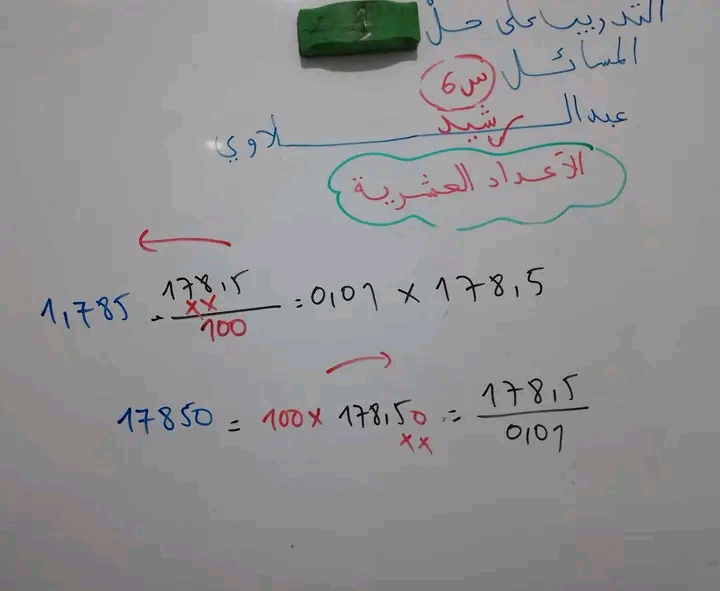 التدريب على حل
المسائل س6
عبدالرشيد لاوي
الأعداد العشرية
1,785 = 178,5 / 100 = 0,01 × 178,5
17850 = 100 × 178,50 = 178,5 / 0,01